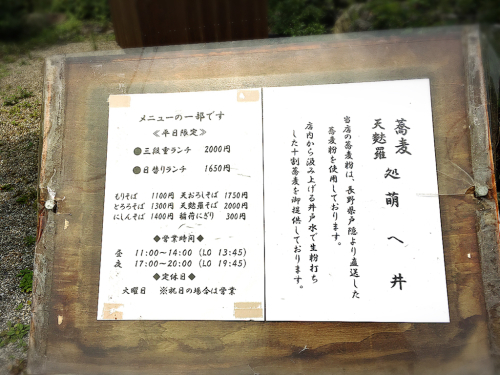 メニューの一部です
≪平日限定≫
●三段重ランチ 2000円
●日替りランチ 1650円
もりそば 1100円 天おろしそば 1750円
とろろそば 1300円 天麩羅そば 2000円
にしんそば 1400円 稲荷にぎり 300円
◆営業時間◆
昼 11:00～14:00 (LO 13:45)
夜 17:00～20:00 (LO 19:45)
◆定休日◆
火曜日 ※祝日の場合は営業
蕎麦 処萌へ井
天麩羅
当店の蕎麦粉は、長野県戸隠より直送した
蕎麦粉を使用しております。
店内から汲み上げる井戸水で生粉打ち
した十割蕎麦を御提供しております。